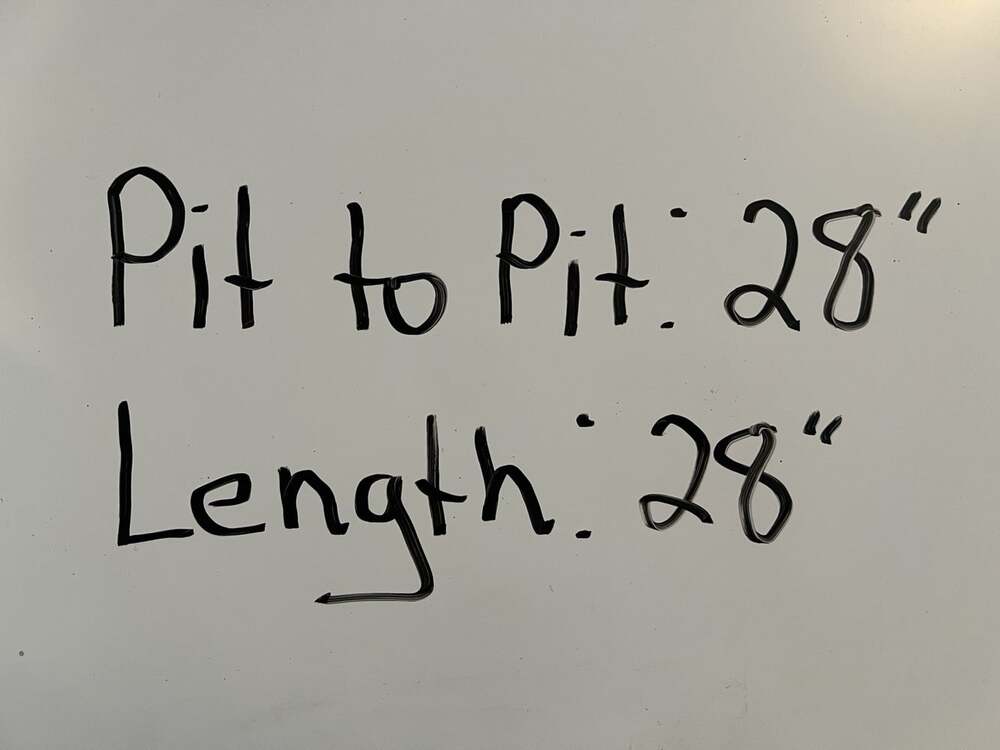 Pit to Pit: 28"
Length: 28"